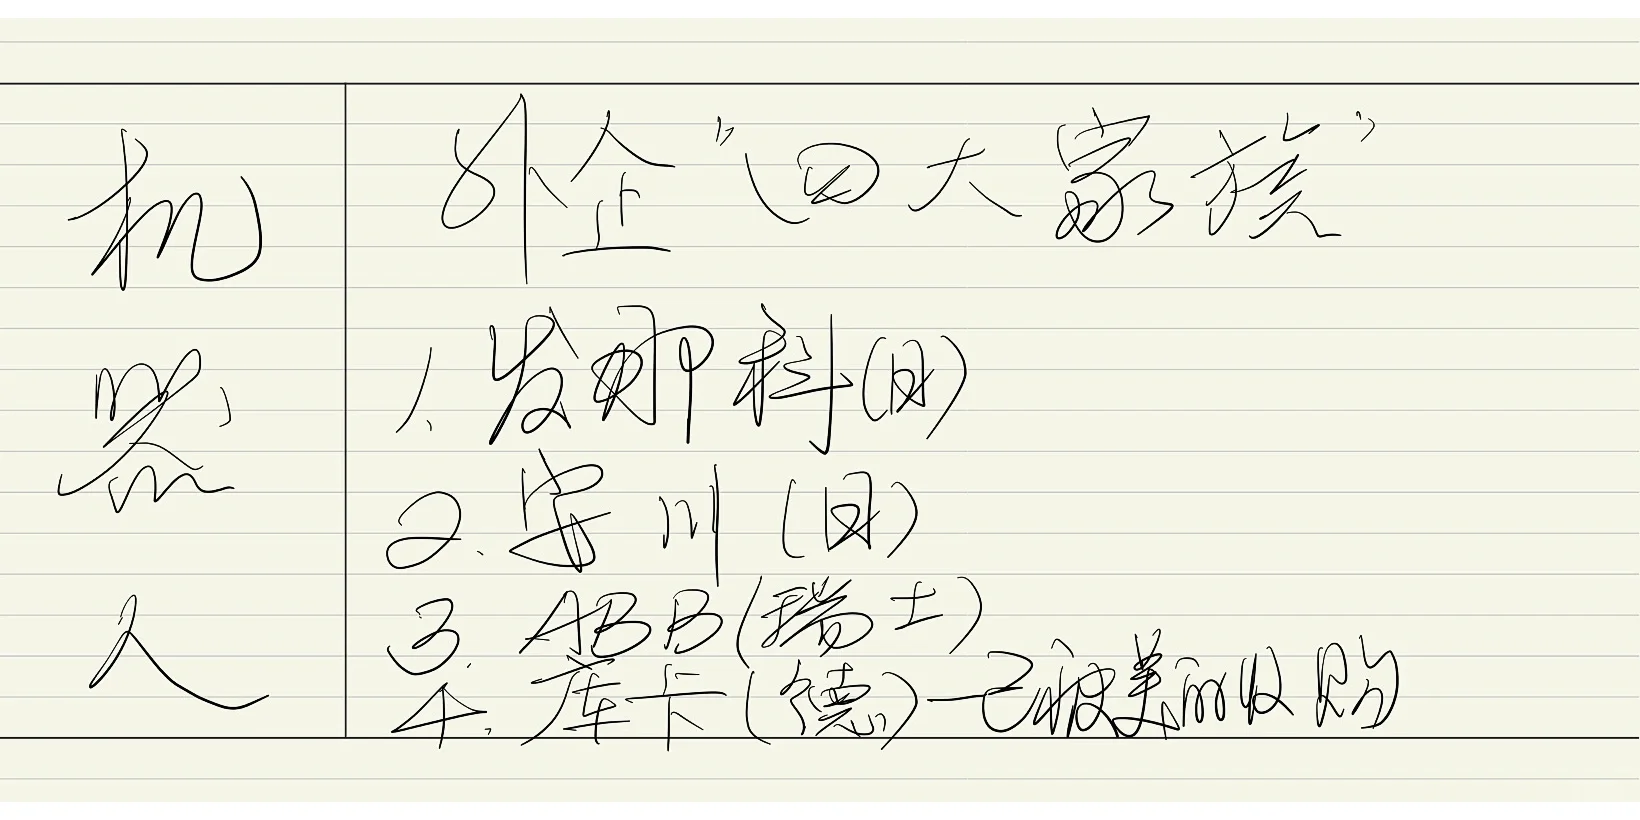 机器人
外企"四大家族"
1. 发那科(日)
2. 安川(日)
3. ABB(瑞士)
4. 库卡(德)—已被美的收购